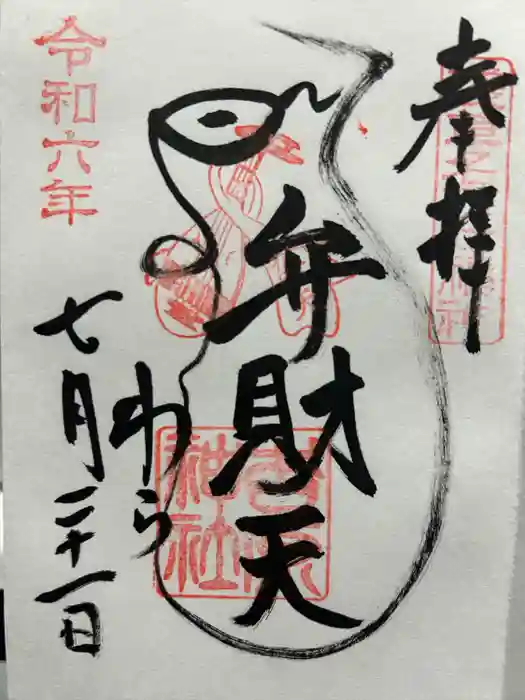 奉拝
弁財天
わら
令和六年
七月二十一日
神社